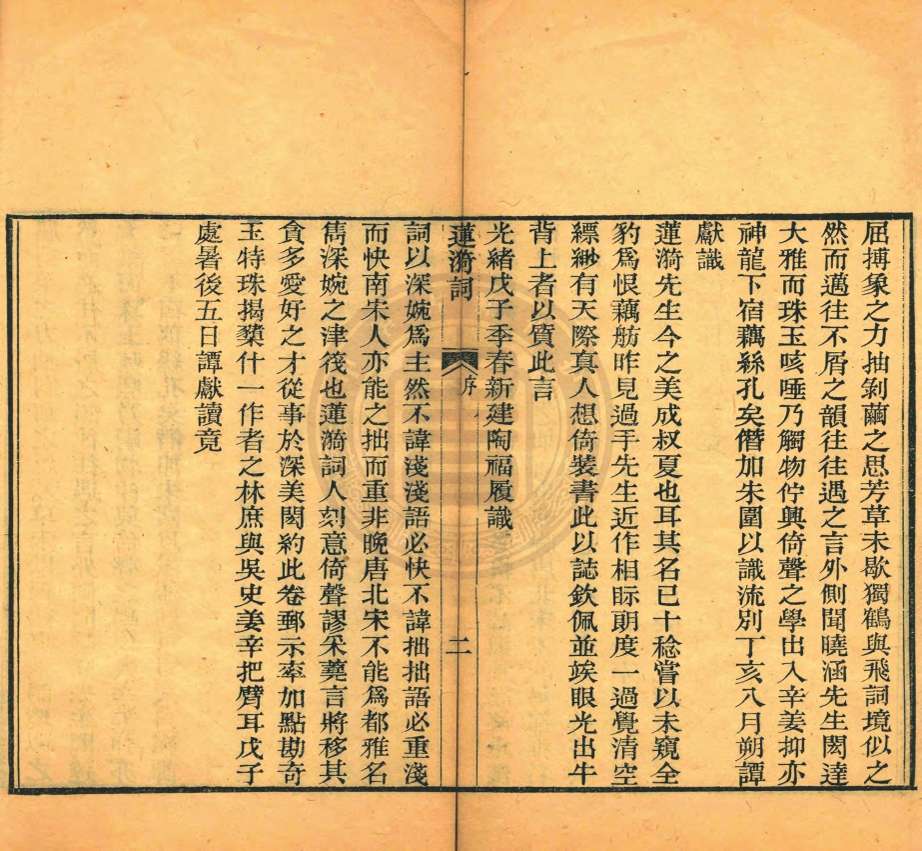 屈搏象之力抽剝繭之思芳草未歇獨鶴與飛詞境似之
然而邁往不屑之韻往往遇之言外側聞曉涵先生閎達
大雅而珠玉咳唾乃觸物佇興倚聲之學出入辛姜抑亦
神龍下宿藕絲孔矣僭加朱圍以識流別丁亥八月朔譚
獻識
蓮漪先生今之美成叔夏也耳其名已十稔嘗以未窺全
豹爲恨藕舫昨見過手先生近作相眎朗度一過覺清空
縹緲有天際真人想倚裝書此以誌欽佩並竢眼光出牛
背上者以質此言
光緒戊子季春新建陶福履識
蓮漪詞 序 二
詞以深婉爲主然不諱淺淺語必快不諱拙拙語必重淺
而快南宋人亦能之拙而重非晚唐北宋不能爲都雅名
雋深婉之津筏也蓮漪詞人刻意倚聲謬采蕘言將移其
貪多愛好之才從事於深美閎約此卷郵示率加點勘奇
玉特珠揭櫫什一作者之林庶與吳史姜辛把臂耳戊子
處暑後五日譚獻讀竟